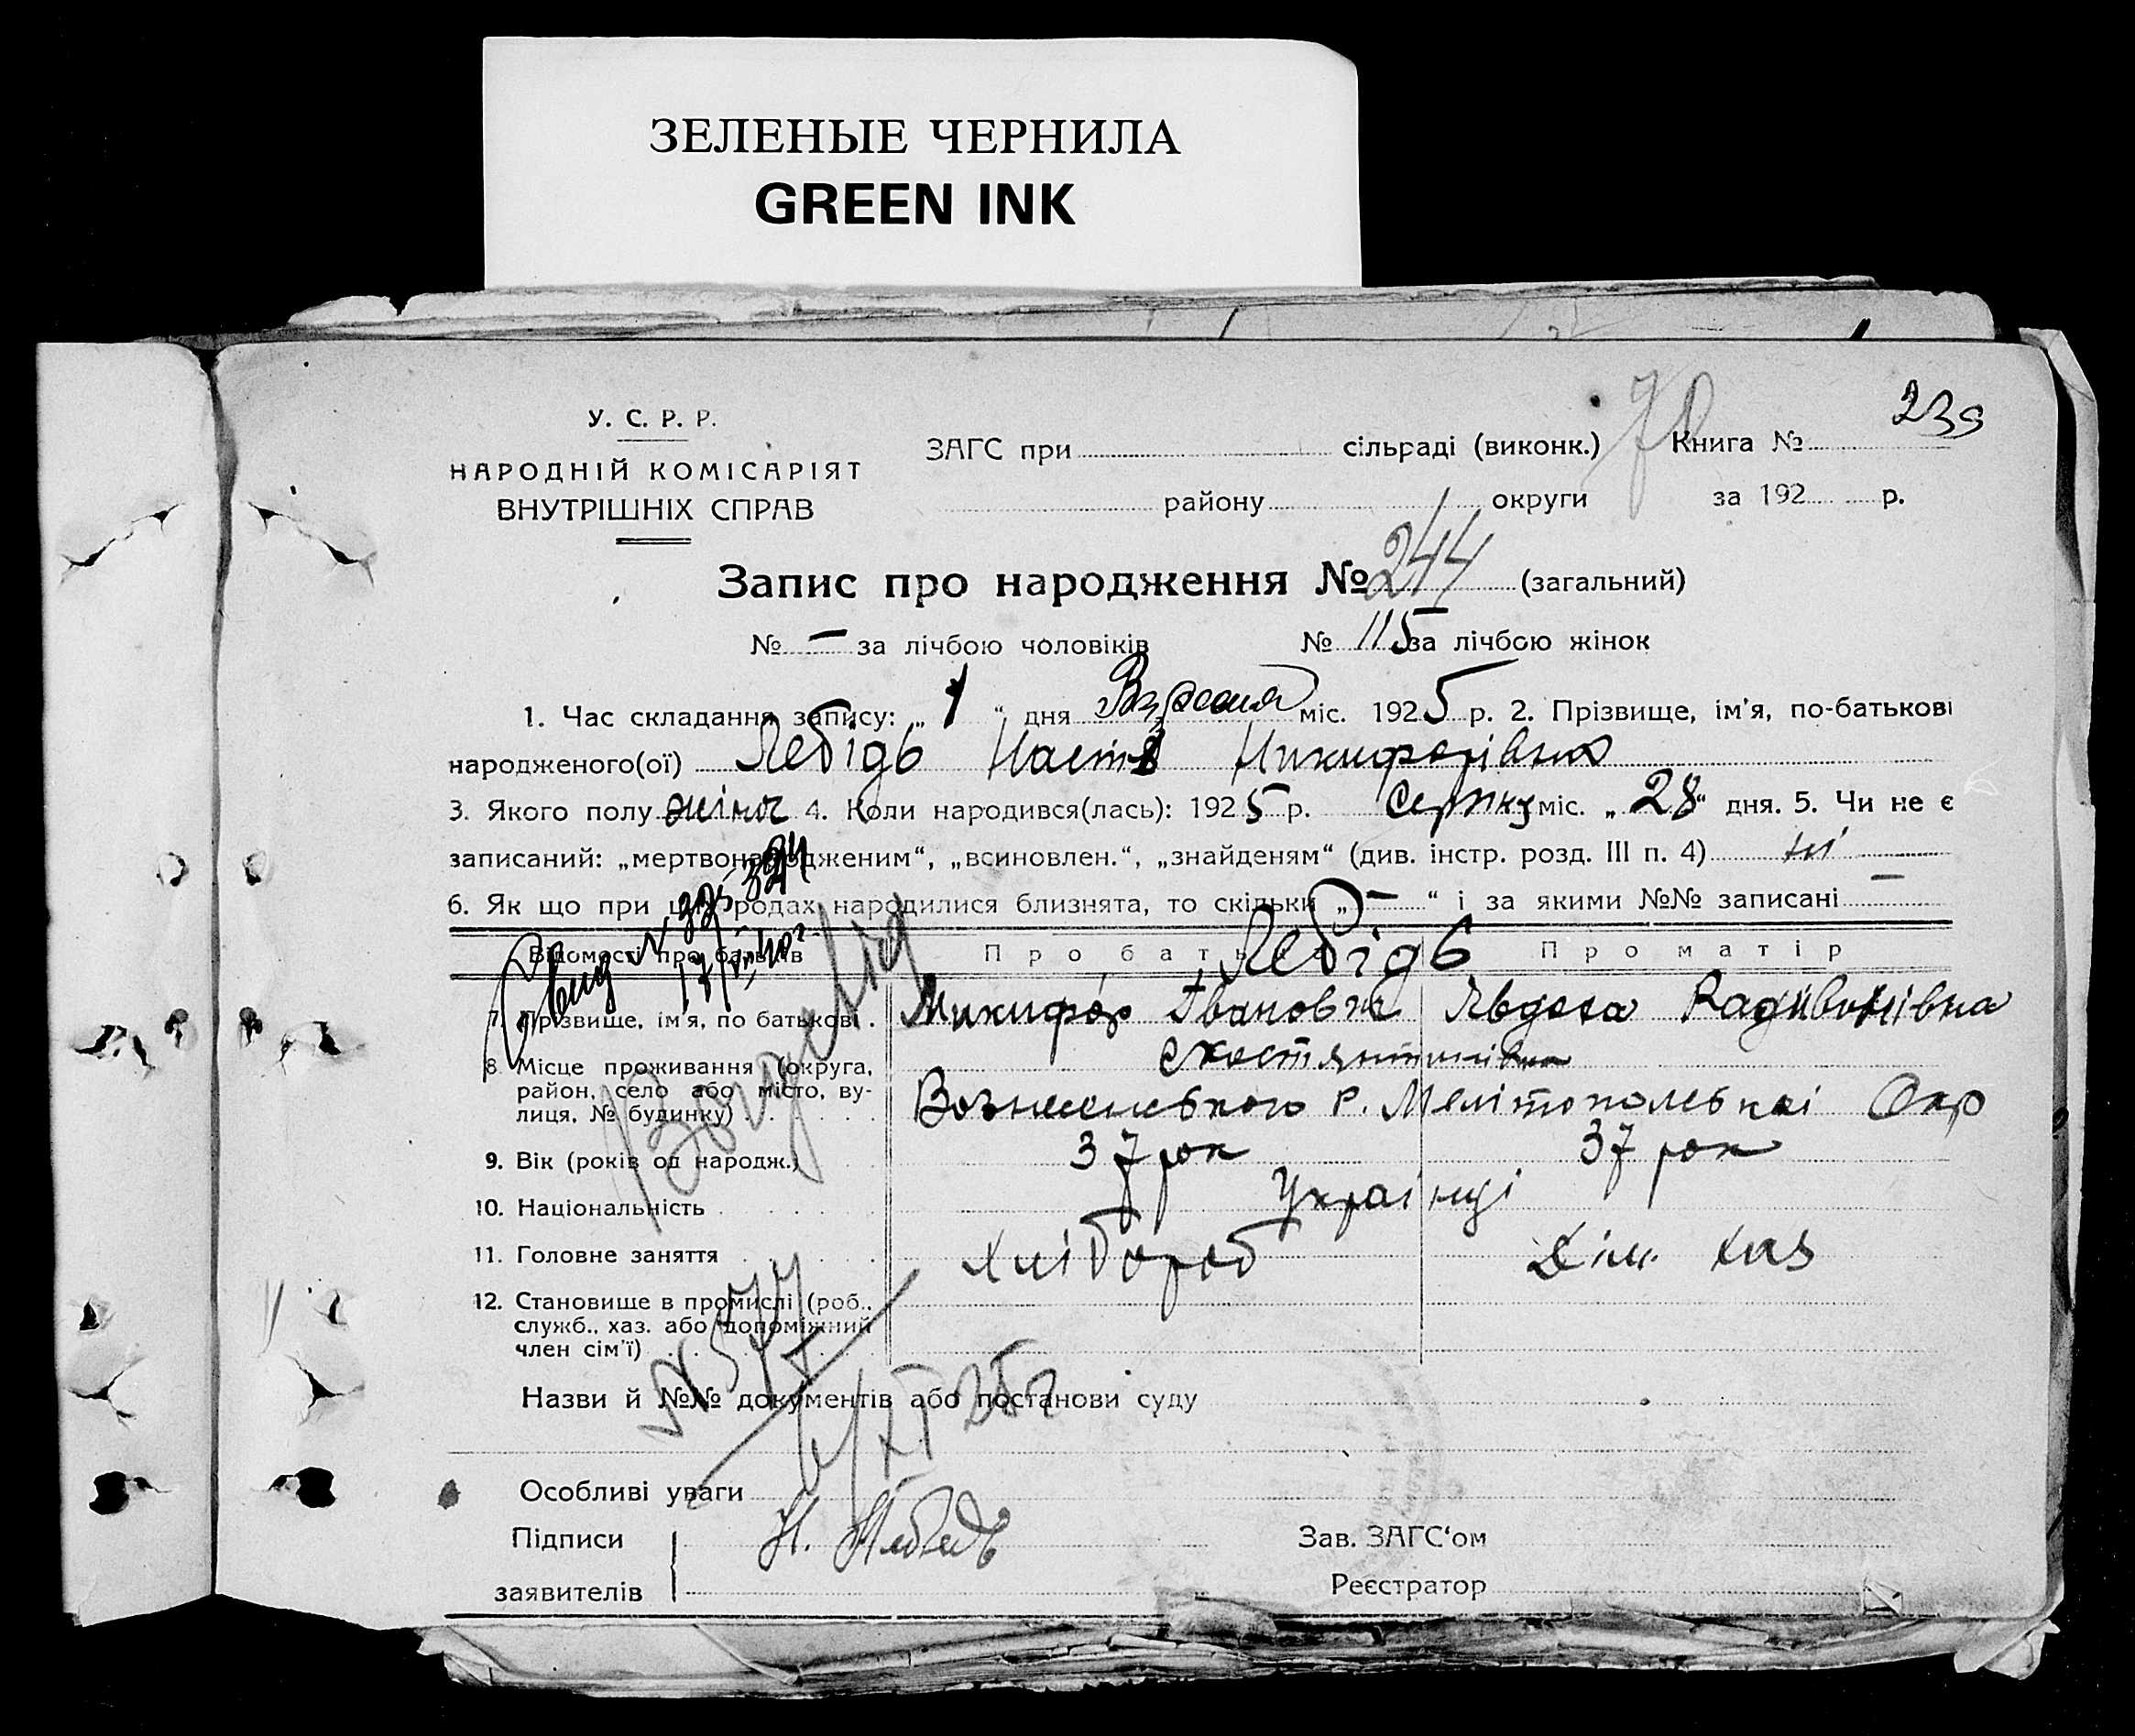 ЗЕЛЕНЫЕ ЧЕРНИЛА
GREEN INK
239
70
У. С. Р. Р.
НАРОДНІЙ КОМІСАРІЯТ
ВНУТРІШНІХ СПРАВ
ЗАГС при сільраді (виконк.) Книга №
району округи за 192 р.
Запис про народження № 244 (загальний)
№ — за лічбою чоловіків № 115 за лічбою жінок
1. Час складання запису: „ 1 “ дня Вересня міс. 1925 р. 2. Прізвище, ім'я, по-батькові
народженого(ої) Лебідь Настя Никифорівна
3. Якого полу жіноч 4. Коли народився(лась): 1925 р. Серпня міс. „ 28 “ дня. 5. Чи не є
записаний: „мертвонародженим“, „всиновлен.“, „знайденям“ (див. інстр. розд. III п. 4) ні
6. Як що при цих родах народилися близнята, то скільки „ — “ і за якими №№ записані —
Відомості про батьків Про батька Про матір
Лебідь
7. Прізвище, ім'я, по батькові Микифор Іванович Явдоха Радивонівна
8. Місце проживання (округа,
район, село або місто, ву-
лиця, № будинку)
с Костянтинівка
Вознесенського р. Мелітопольскі Окр
9. Вік (років од народж.) 37 рок 37 рок
10. Національність Українці
11. Головне заняття хлібороб Дім. хаз
12. Становище в промислі (роб.,
служб., хаз. або допоміжний
член сім'ї)
№ 577
Назви й №№ документів або постанови суду
6/XI 25 г
Особливі уваги
Підписи Н. Лебедь Зав. ЗАГС'ом
заявителів Реєстратор